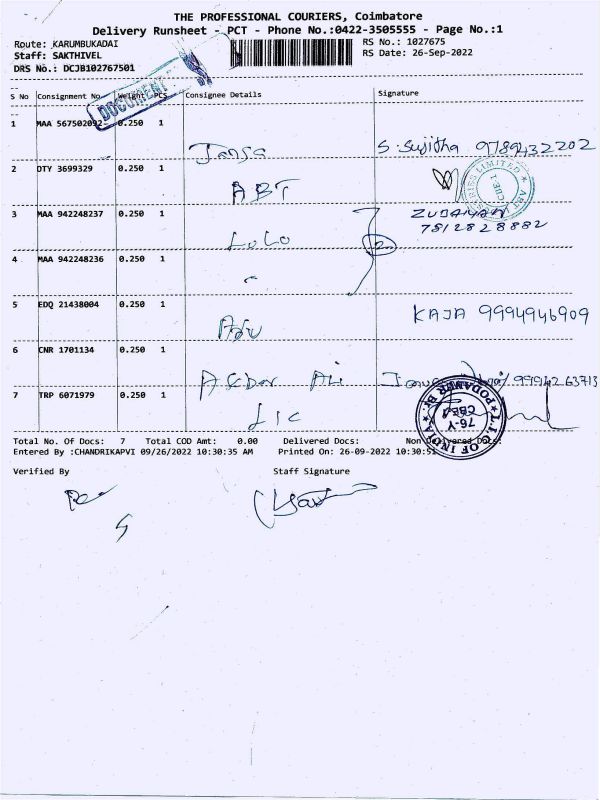 THE PROFESSIONAL COURIERS, Coimbatore
Delivery Runsheet - PCT - Phone No.:0422-3505555 - Page No.:1
Route: KARUMBUKADAI
RS No.: 1027675
Staff: SAKTHIVEL
RS Date: 26-Sep-2022
DRS No.: DCJB102767501
DOCUMENT
S No Consignment No. Weight PCS Consignee Details Signature
1 MAA 567502092 0.250 1
S. Sujitha 9789432202
2 DTY 3699329 0.250 1
ABT
3 MAA 942248237 0.250 1
LuLu
7812828882
4 MAA 942248236 0.250 1
5 EDQ 21438004 0.250 1
KAJA 9994946909
6 CNR 1701134 0.250 1
Ali
7 TRP 6071979 0.250 1
LIC
Total No. Of Docs: 7 Total COD Amt: 0.00 Delivered Docs: Non Delivered Docs:
Entered By :CHANDRIKAPVI 09/26/2022 10:30:35 AM Printed On: 26-09-2022 10:30:51
Verified By Staff Signature